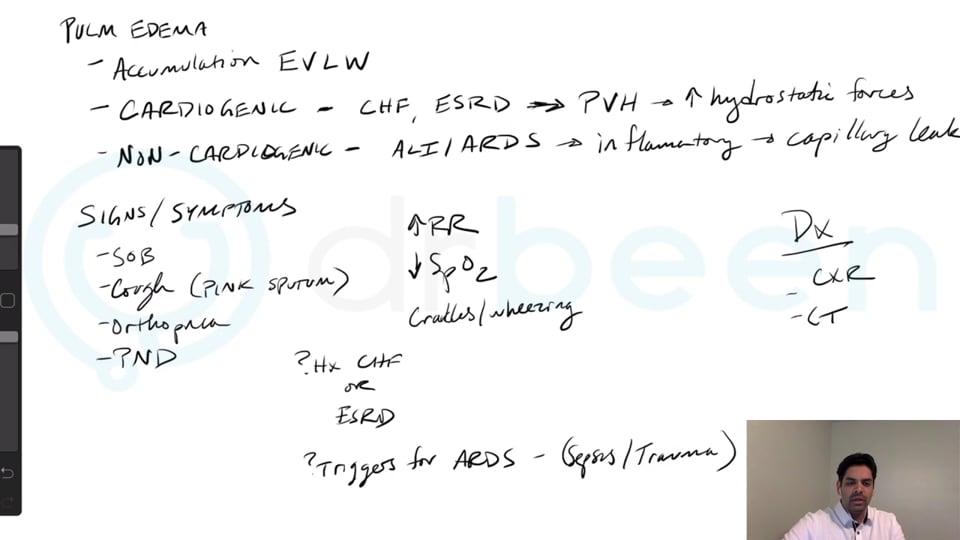 PULM EDEMA
- Accumulation EVLW
- CARDIOGENIC - CHF, ESRD → PVH → ↑ hydrostatic forces
- NON-CARDIOGENIC - ALI/ARDS → inflamatory → capillary leak
SIGNS/SYMPTOMS
- SOB
- Cough (PINK SPUTUM)
- Orthopnea
- PND
↑RR
↓SpO2
Crackles/wheezing
?Hx CHF
OR
ESRD
?Triggers for ARDS - (Sepsis/Trauma)
Dx
- CXR
- CT
drbeen